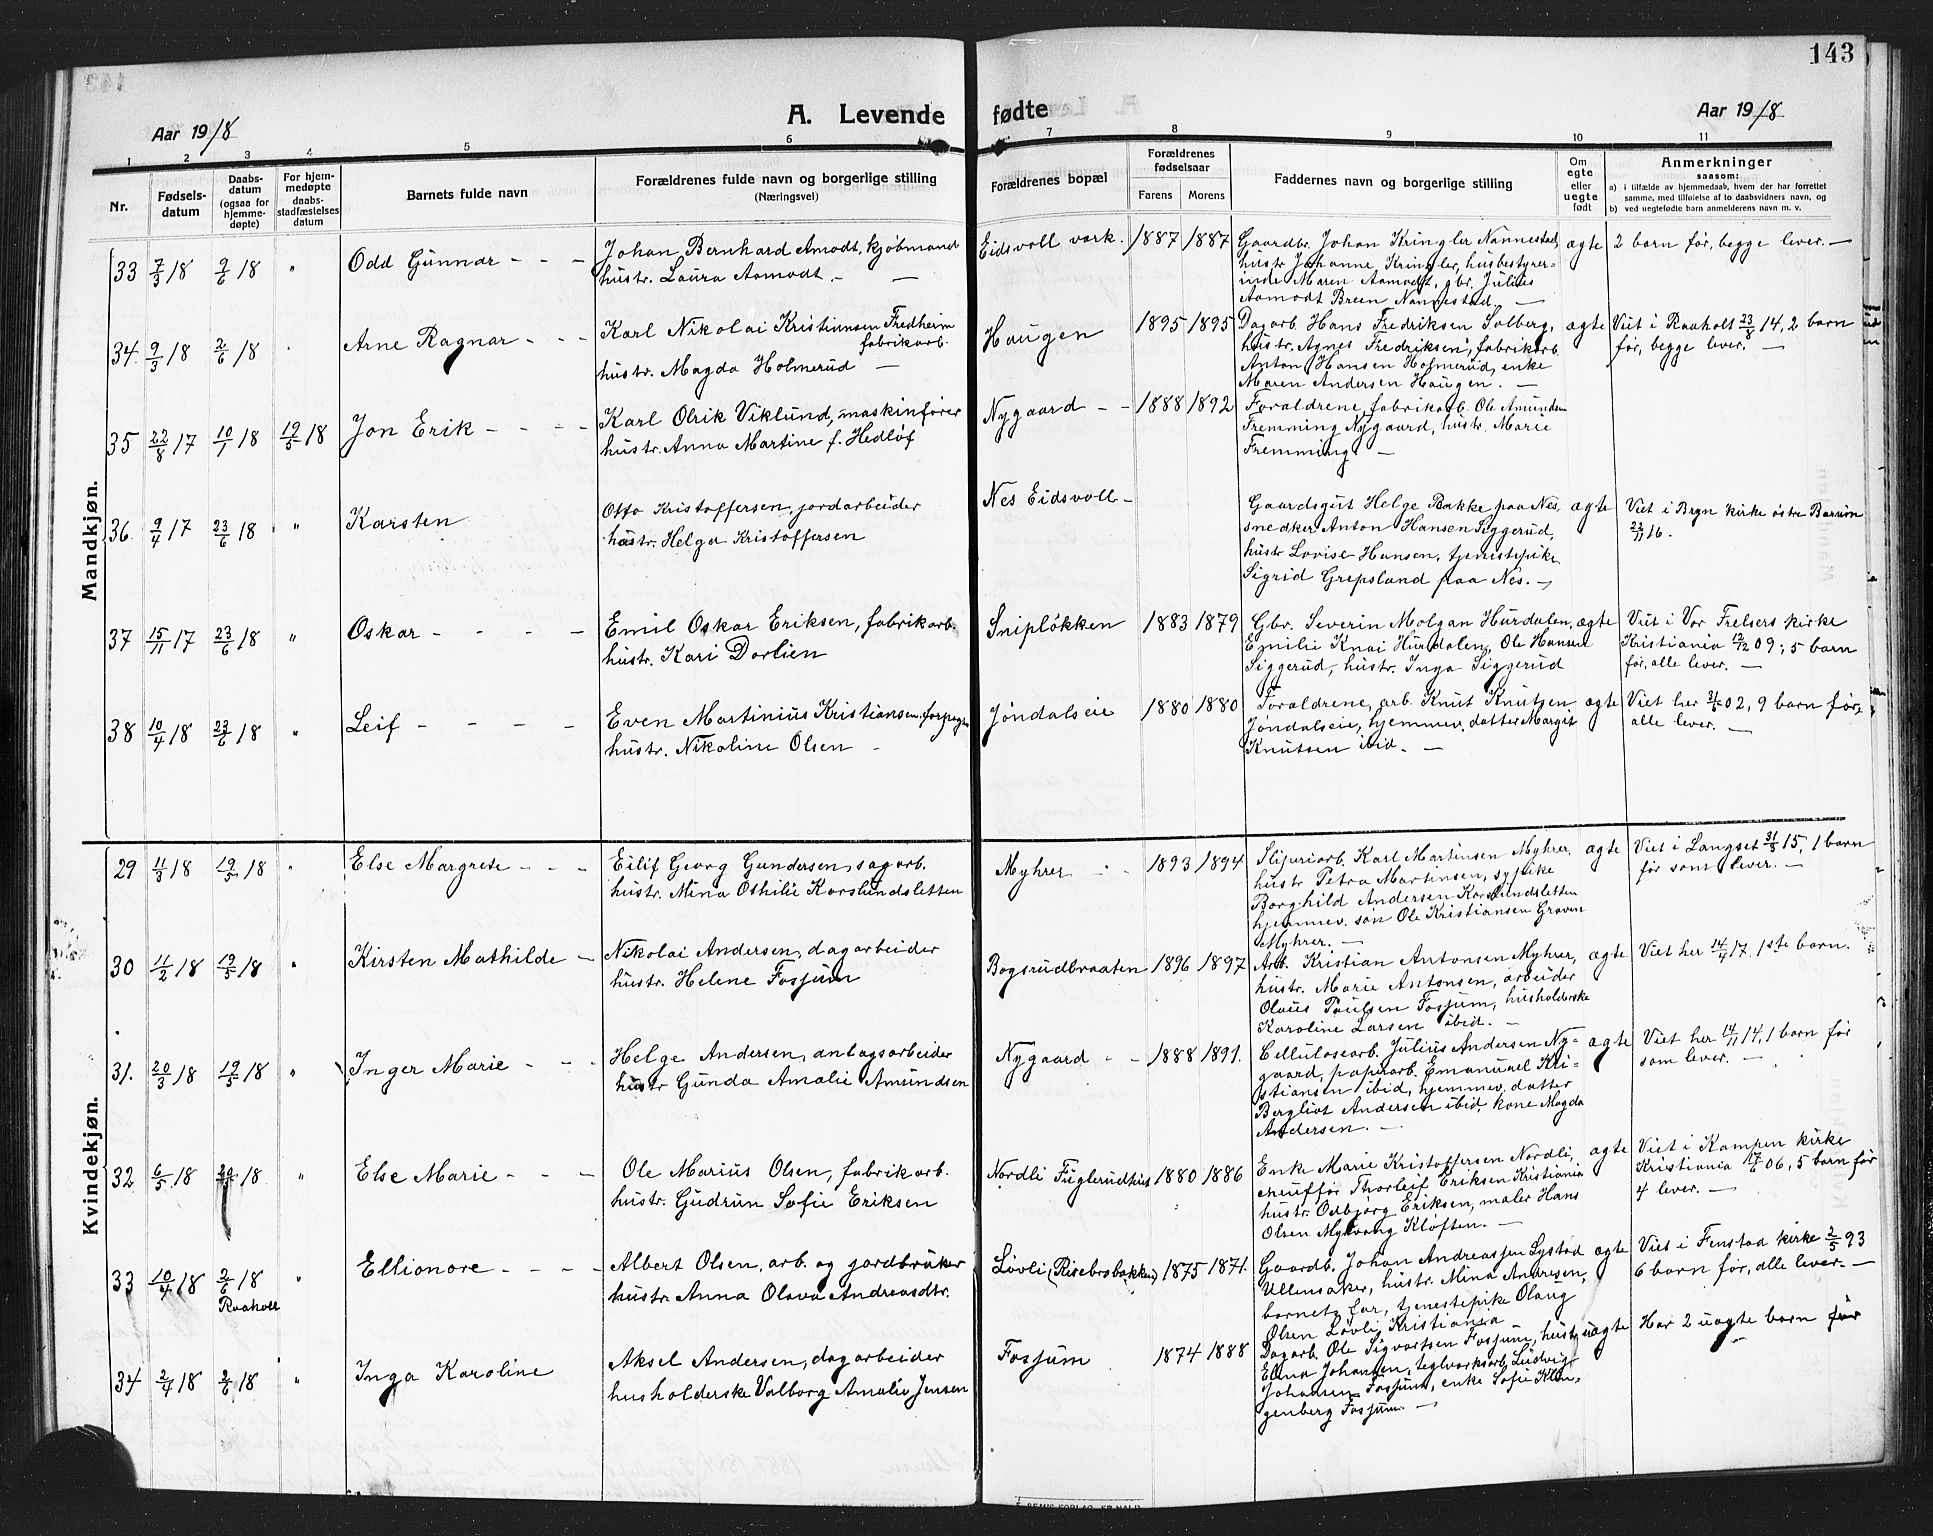 143
A. Levende fødte
Aar 1918
Aar 1918
1 2 3 4 5 6 7 8 9 10 11
Nr.
Fødsels-
datum
Daabs-
datum
(ogsaa for
hjemme-
døpte)
For hjem-
medøpte
daabs-
stadfæstelses
datum
Barnets fulde navn
Forældrenes fulde navn og borgerlige stilling
(Næringsvei)
Forældrenes bopæl
Forældrenes
fødselsaar
Farens Morens
Faddernes navn og borgerlige stilling
Om
egte
eller
uegte
født
Anmerkninger
saasom:
a) i tilfælde av hjemmedaab, hvem der har forrettet
samme, med tilføielse af to daabsvidners navn, og
b) ved uegtefødte barn anmelderens navn m. v.
Mandkjøn.
33 7/3 18 9/6 18 " Odd Gunnar - - -
Johan Bernhard Amodt, kjøbmand
hustr. Laura Aamodt. - —
Eidsvoll værk. 1887 1887
Gaardbr. Johan Kringler Nannestad,
hustr Johanne Kringler, husbestyrer-
inde Maren Aamodt, gbr. Julius
Aamodt Breen Nannestad. —
ægte
2 barn før, begge lever. —
34. 9/3 18 2/6 18 Arne Ragnar - - -
Karl Nikolai Kristiansen Fredheim
fabrikarb.
hustr. Magda Holmerud —
Haugen 1895 1895
Dagarb. Hans Fredriksen Solberg,
hustr. Agnes Fredriksen, fabrikarb.
Anton Hansen Holmerud, enke
Maren Andersen Haugen. —
ægte
Viet i Raaholt 23/8 14, 2 barn
før, begge lever. —
35 22/8 17 10/1 18 19/5 18 Jon Erik - - - -
Karl Olrik Viklund, maskinfører
hustr. Anna Martine f. Hedløf
Nygaard - - 1888 1892
Forældrene, fabrikarb. Ole Amundsen
Fremming Nygaard, hustr. Marie
Fremming. —
36. 9/4 17 23/6 18 " Karsten
Otto Kristoffersen, jordarbeider
hustr. Helga Kristoffersen
Nes Eidsvoll -
Gaardsgut Helge Bakke paa Nes,
snedker Anton Hansen Siggerud,
hustr Lovise Hansen, tjenestepike
Sigrid Grepsland paa Nes. —
ægte
Viet i Bryn kirke østre Bærum
22/11 16.
37 15/11 17 23/6 18 " Oskar - - - -
Emil Oskar Eriksen, fabrikarb.
hustr. Kari Dorlien
Snipløkken 1883 1879
Gbr. Severin Molgan Hurdalen,
Emilie Knai Hurdalen, Ole Hansen
Siggerud, hustr. Inga Siggerud
ægte
Viet i Vor Frelsers kirke
Kristiania 12/12 09; 5 barn
før, alle lever. —
38 10/4 18 23/6 18 " Leif - - - -
Even Martinius Kristiansen,
hustr. Nikoline Olsen -
Jøndalseie 1880 1880
Forældrene, arb. Knut Knutsen
Jøndalseie, hjemmev. datter Margit
Knutsen ibid. —
ægte
Viet her 3/1 02, 9 barn før,
alle lever. —
Kvindekjøn.
29 11/3 18 19/5 18 " Else Margrete - - -
Eilif Georg Gundersen, sagarb.
hustr. Mina Othilie Korslundsletten
Myhrer - - 1893 1894
Sliperiarb. Karl Martinsen Myhrer,
hustr Petra Martinsen, sypike
Borghild Andersen Korslundsletten
hjemmev. søn Ole Kristiansen Graven
Myhrer. —
ægte
Viet i Langset 31/5 15, 1 barn
før som lever. —
30 11/2 18 19/5 18 " Kirsten Mathilde -
Nikolai Andersen, dagarbeider
hustr. Helene Fosjum
Bogsrudbraaten 1896 1897
Arb. Kristian Antonsen Myhrer,
hustr. Marie Antonsen, arbeider
Olaus Paulsen Fosjum, husholderske
Karoline Larsen ibid. —
ægte
Viet her 14/4 17. 1ste barn.
31. 20/3 18 19/5 18 " Inger Marie - - -
Helge Andersen, anlagsarbeider
hustr Gunda Amalie Amundsen
Nygaard - - 1888 1891.
Cellulosearb. Julius Andersen Ny-
gaard, papirarb. Emanuael Kri-
stiansen ibid, hjemmev. datter
Bergliot Andersen ibid, kone Magda
Andersen. —
ægte
Viet her 14/11 14, 1 barn før
som lever. —
32 6/5 18 18 " Else Marie - - -
Ole Marius Olsen, fabrikarb.
hustr. Gudrun Sofie Eriksen
Nordli Fuglerudhus 1880 1886
Enke Marie Kristoffersen Nordli,
chauffør Thorleif Eriksen Kristiania
hustr. Odbjørg Eriksen, maler Hans
Olsen Myrvang Kløften. —
ægte
Viet i Kampen kirke
Kristiania 17/6 06, 5 barn før
4 lever. —
33 10/4 18 2/6 18 " Ellionore - - - -
Raaholt
Albert Olsen, arb. og jordbruker
hustr. Anna Olava Andreasdtr.
Løvli (Risebrobakken) 1875 1871.
Gaardb. Johan Andreassen Lystad
Ullensaker, hustr. Mina Andresen,
barnets far, tjenestepike Olaug
Olsen Løvli Kristiania
ægte
Viet i Fenstad kirke 2/5 93
6 barn før, alle lever. —
34 2/4 18 2/6 18 " Inga Karoline
Aksel Andersen, dagarbeider
husholderske Valborg Amalie Jensen
Fosjum 1874 1888
Dagarb. Ole Sigvartsen Fosjum, hustr
Elina Johansen, teglværksarb. Ludvig
Johansen Fosjum, enke Sofie Klin-
genberg Fosjum. —
uægte
Har 2 uægte barn før
—